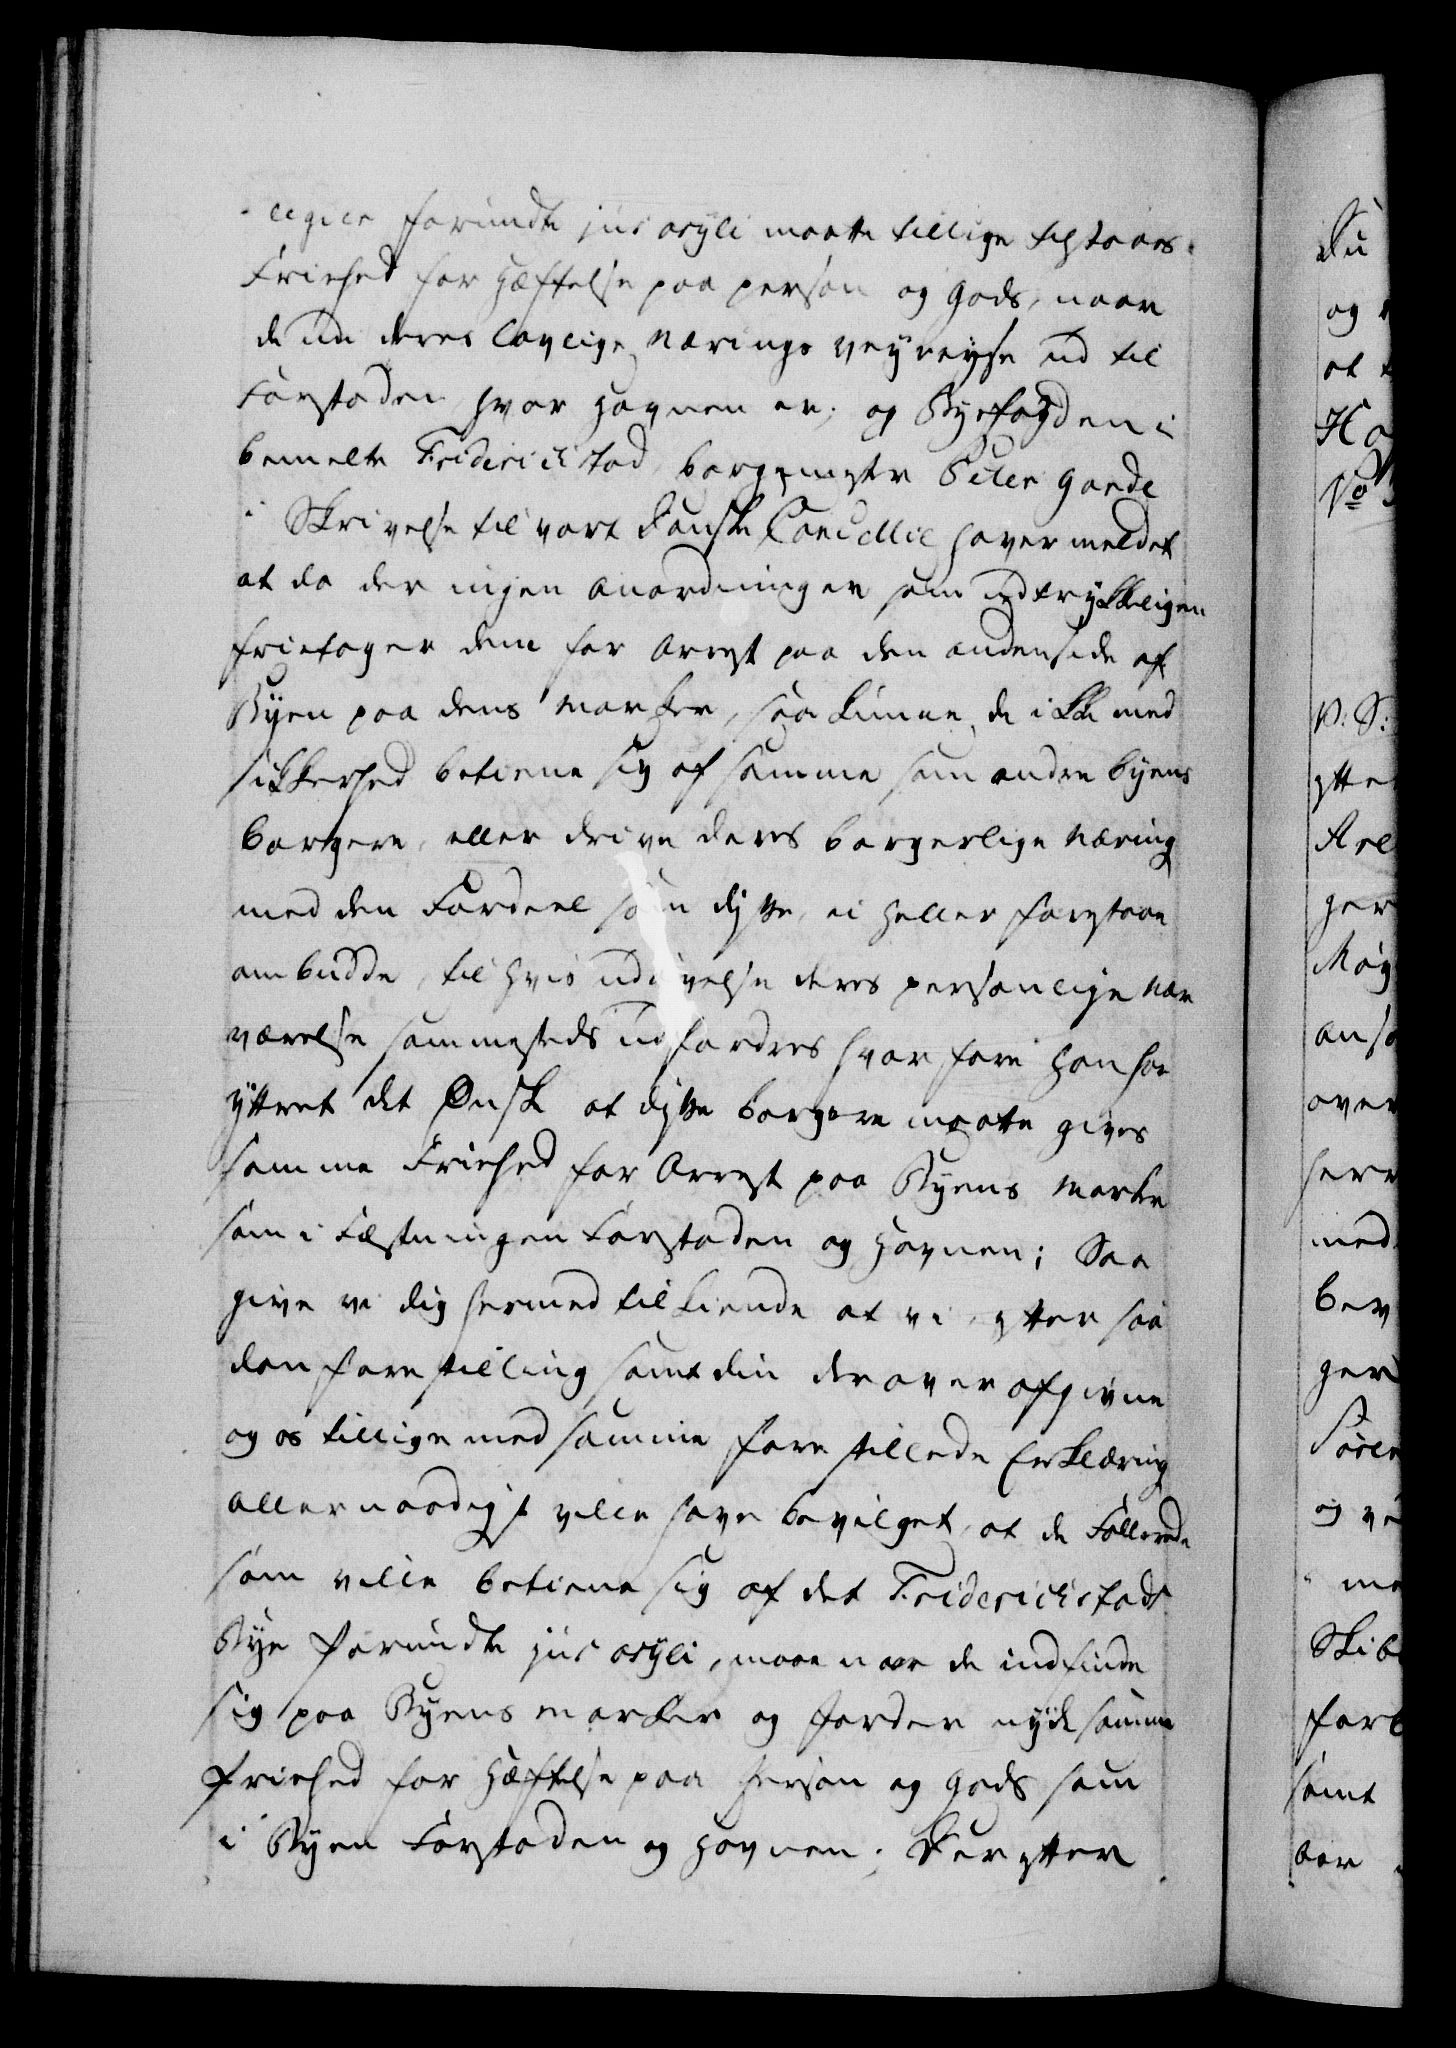 legier forundte jus asyli maatte tillige tilstaaes
Friehed for Hæftelse paa person og Gods, naar
de i deres lovlige Nærings Vey reyse ud til
Forstaden hvor Havnen er; og Byefogden i
bemelte Friderichstad, borgemester Peter Garde
i Skrivelse til vort danske Cancellie haver meldet
at da der ingen Anordninger som udtrykkeligen
frietager dem for Arrest paa den anden side af
Byen paa dens Marker, saa kunne de ikke med
sikkerhed betiene sig af samme som andre Byens
Borgere, eller drive deres borgerlige Næring
med den Fordeel som disse, ei heller forestaae
ombudde, til hvis udøvelse deres personlige Nær
værelse sammesteds udfordres hvorfore han har
yttret det Ønske at disse borgere maatte gives
samme Friehed for Arrest paa Byens Marke
som i Fæstningen Forstaden og Havnen; Saa
give vi dig hermed tilkiende at vi, efter saa
dan forestilling samt din derover afgivne
og os tillige med samme forestillede Erklæring
allernaadigst ville have bevilget, at de Fallerede
som ville betiene sig af det Friderichstads
Bye forundte jus asyli, maae naar de indfinde
sig paa Byens Marker og Jorder nyde samme
friehed for Hæftelse paa Person og Gods som
i Byen Forstaden og Havnen; Derefter

Du
og
at
No
P: S:
efter
ger
Møg
over
herr
med
Bev
ger
og ve
Skib
forb
samt